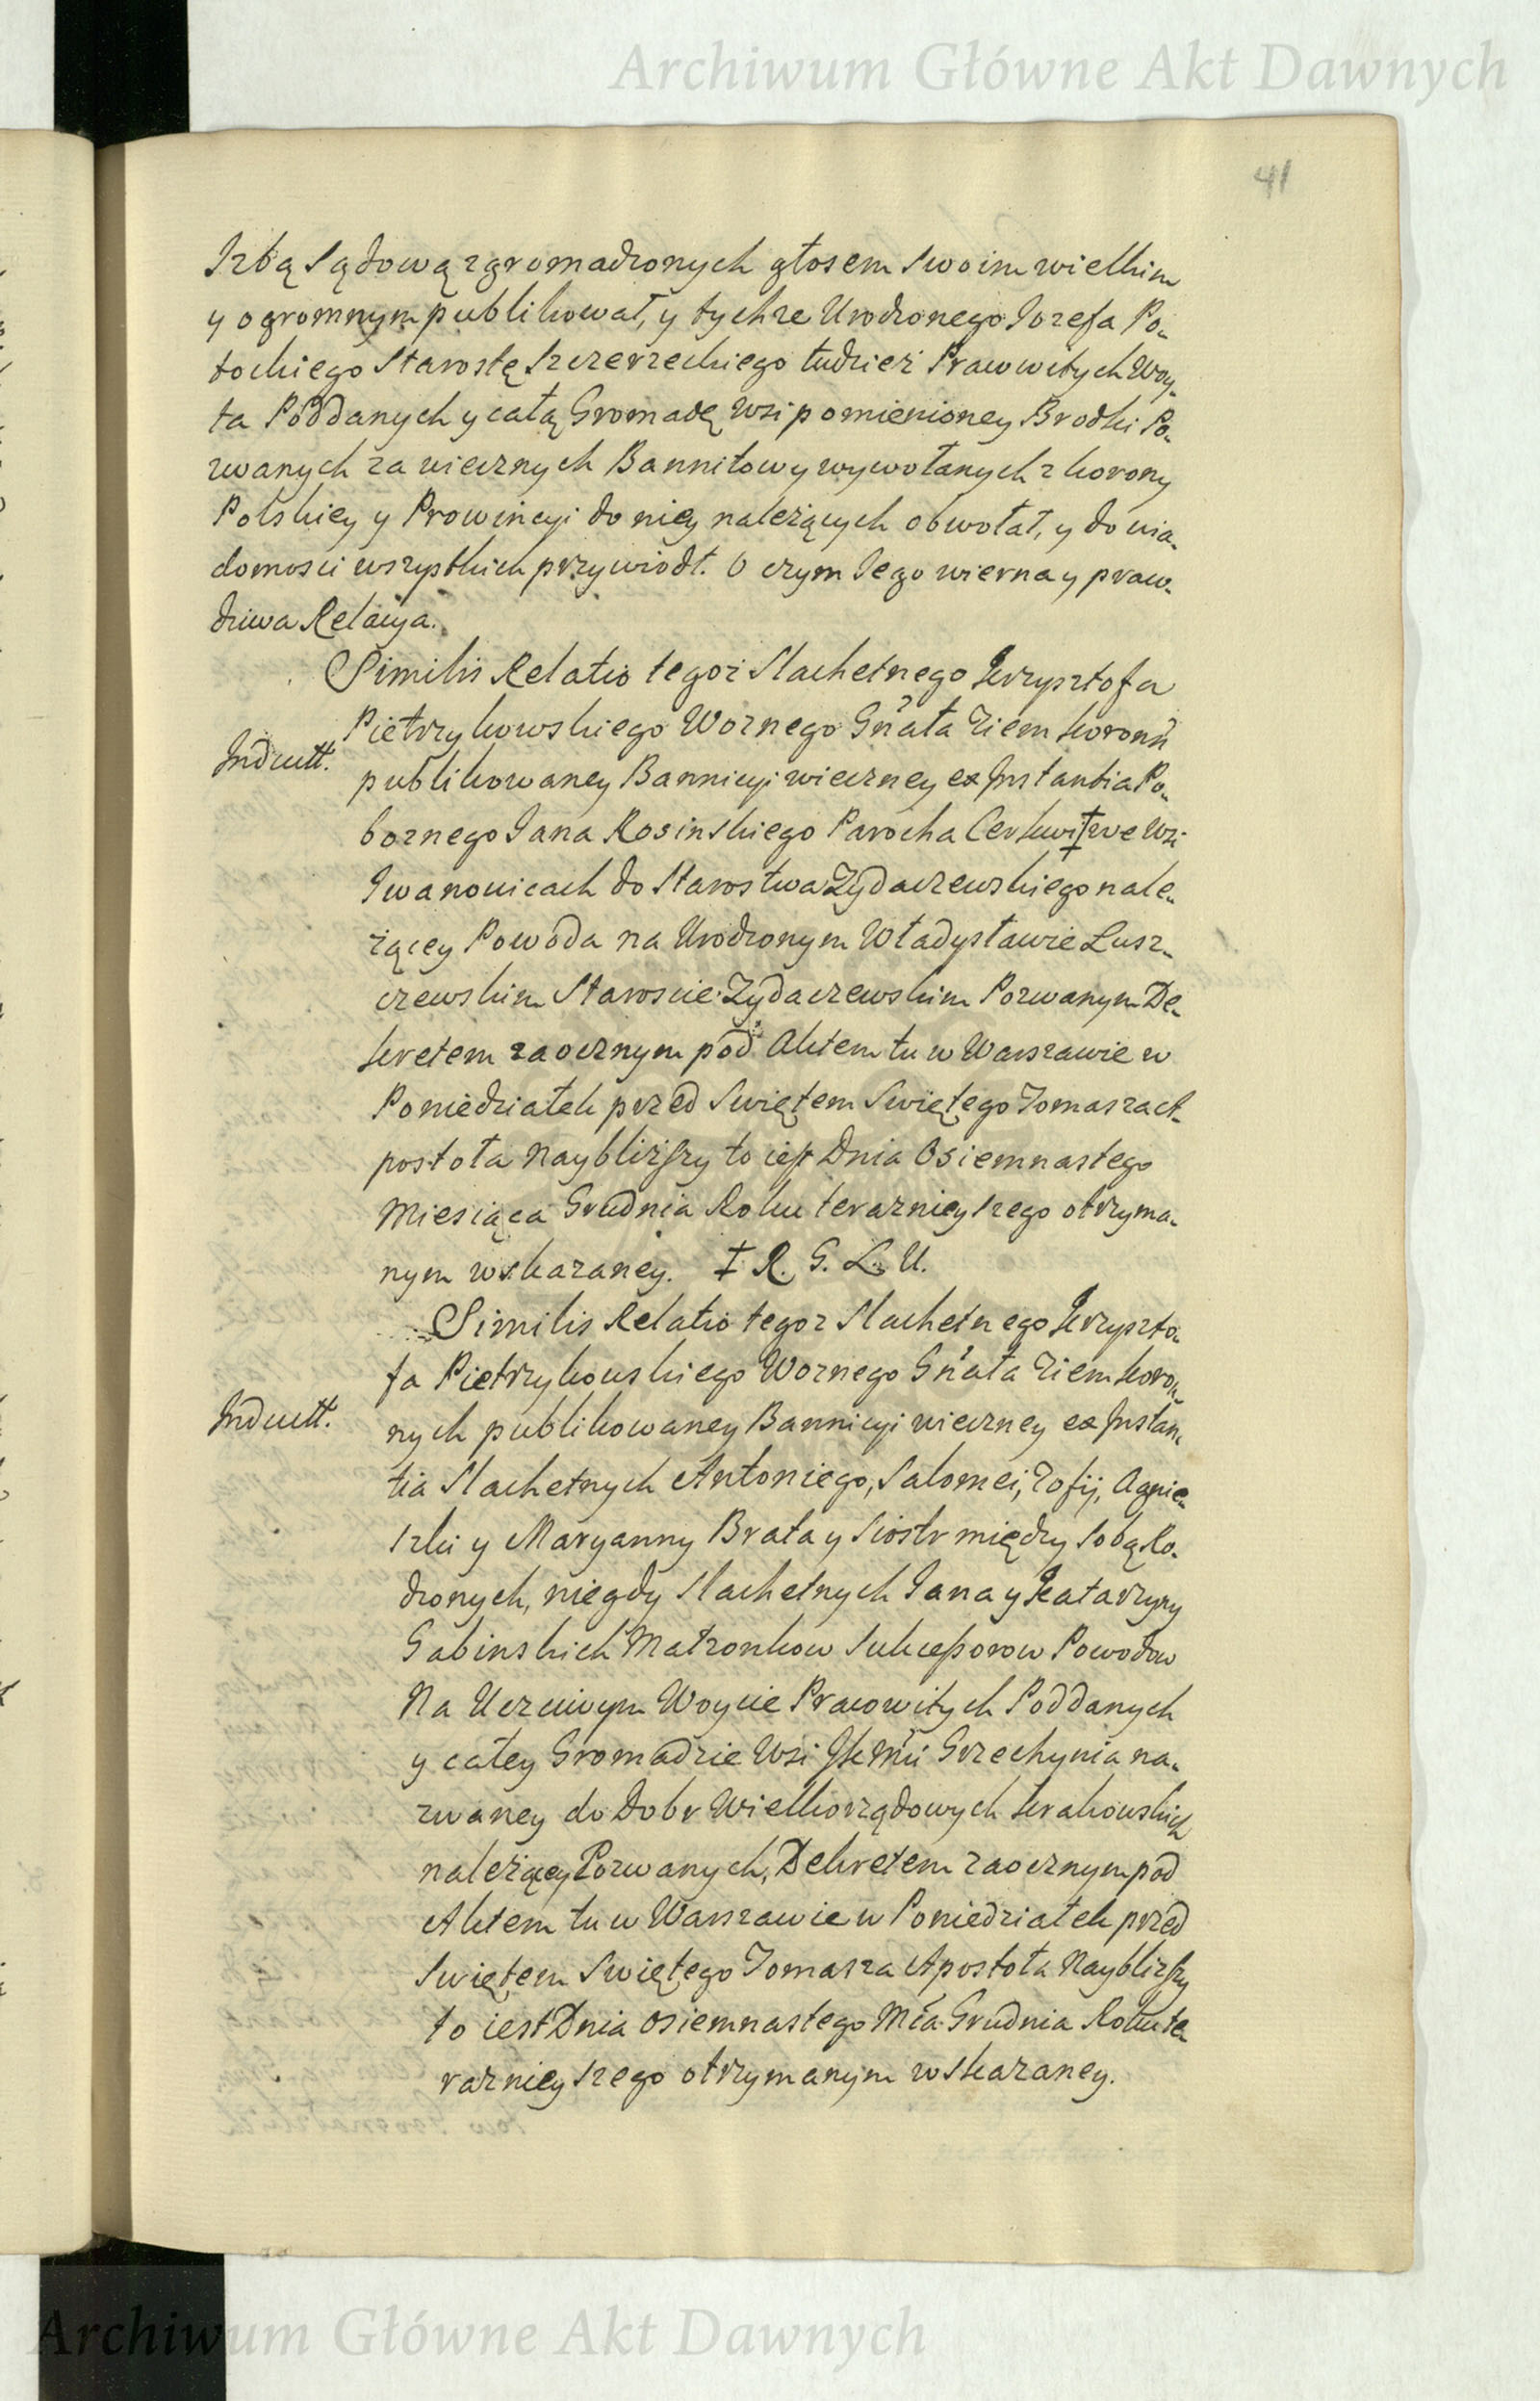 Archiwum Główne Akt Dawnych
41
Izbą Sądową zgromadzonych głosem Swoim wielkim
y ogromnym publikował, y tychże Urodzonego Jozefa Po-
tockiego Starostę Szczerzeckiego tudzież Pracowitych Woy-
ta Poddanych y całą Gromadę Wsi pomienioney Brodki Po-
zwanych za wiecznych Bannitow y wywołanych z Korony
Polskiey y Prowincyi do niey należących obwołał, y do wia-
domosci wszystkich przywiodł. O czym Jego wierna y praw-
dziwa Relacya.
Similis Relatio tegoż Slachetnego Krzysztofa
Pietrzykowskiego Woznego Gnała Ziem Koronn
Inductt.
publikowaney Bannicyi wieczney ex Instantia Po-
boznego Jana Rosinskiego Parocha Cerkwi ‡ we Wsi
Iwanowicach do Starostwa Zydaczewskiego nale-
żącey Powoda na Urodzonym Władysławie Lusz-
czewskim Staroscie Zydaczewskim Pozwanym De-
kretem zaocznym pod Aktem tu w Warszawie w
Poniedziałek przed Swiętem Swiętego Tomasza A-
postoła Naybliższy to iest Dnia Osiemnastego
Miesiąca Grudnia Roku terazniejszego otrzyma-
nym wskazaney. ‡ R. G. L. U.
Similis Relatio tegoz Slachetnego Krzyszto-
fa Pietrzykowskiego Woznego Gnała Ziem Koron-
Inductt.
nych publikowaney Bannicyi wieczney ex Instan-
tia Slachetnych Antoniego, Salomei, Zofij, Agnie-
szki y Maryanny Brata y Siostr między Sobą Ro-
dzonych, niegdy Slachetnych Jana y Katarzyny
Gabinskich Małzonkow Sukcessorow Powodow
Na Uczciwym Woycie Pracowitych Poddanych
y całey Gromadzie Wsi JKMci Grzechynia na-
zwaney do Dobr Wielkorządowych Krakowskich
należącey Pozwanych, Dekretem zaocznym pod
Aktem tu w Warszawie w Poniedziałek przed
Swiętem Swiętego Tomasza Apostoła Naybliższy
to iest Dnia osiemnastego Mca Grudnia Roku te-
raznieyszego otrzymanym wskazaney.
Archiwum Główne Akt Dawnych